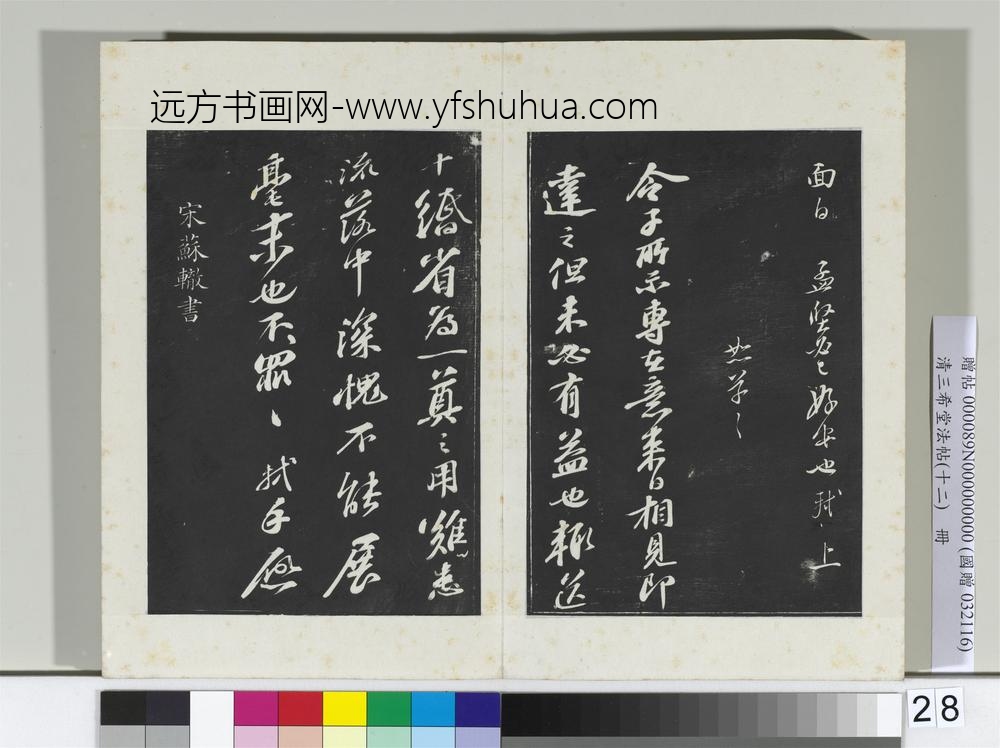 远方书画网-www.yfshuhua.com
面白 孟堅必已好安也 軾 上
恕草々
令子所示專在意來日相見即
達之但未必有益也輒送
十緡省為一奠之用雖
流落中深愧不能展
毫末也不罪々 軾手啟
宋蘇轍書
贈帖 000089N000000000 (國贈 032116)
清三希堂法帖(十二) 冊
28